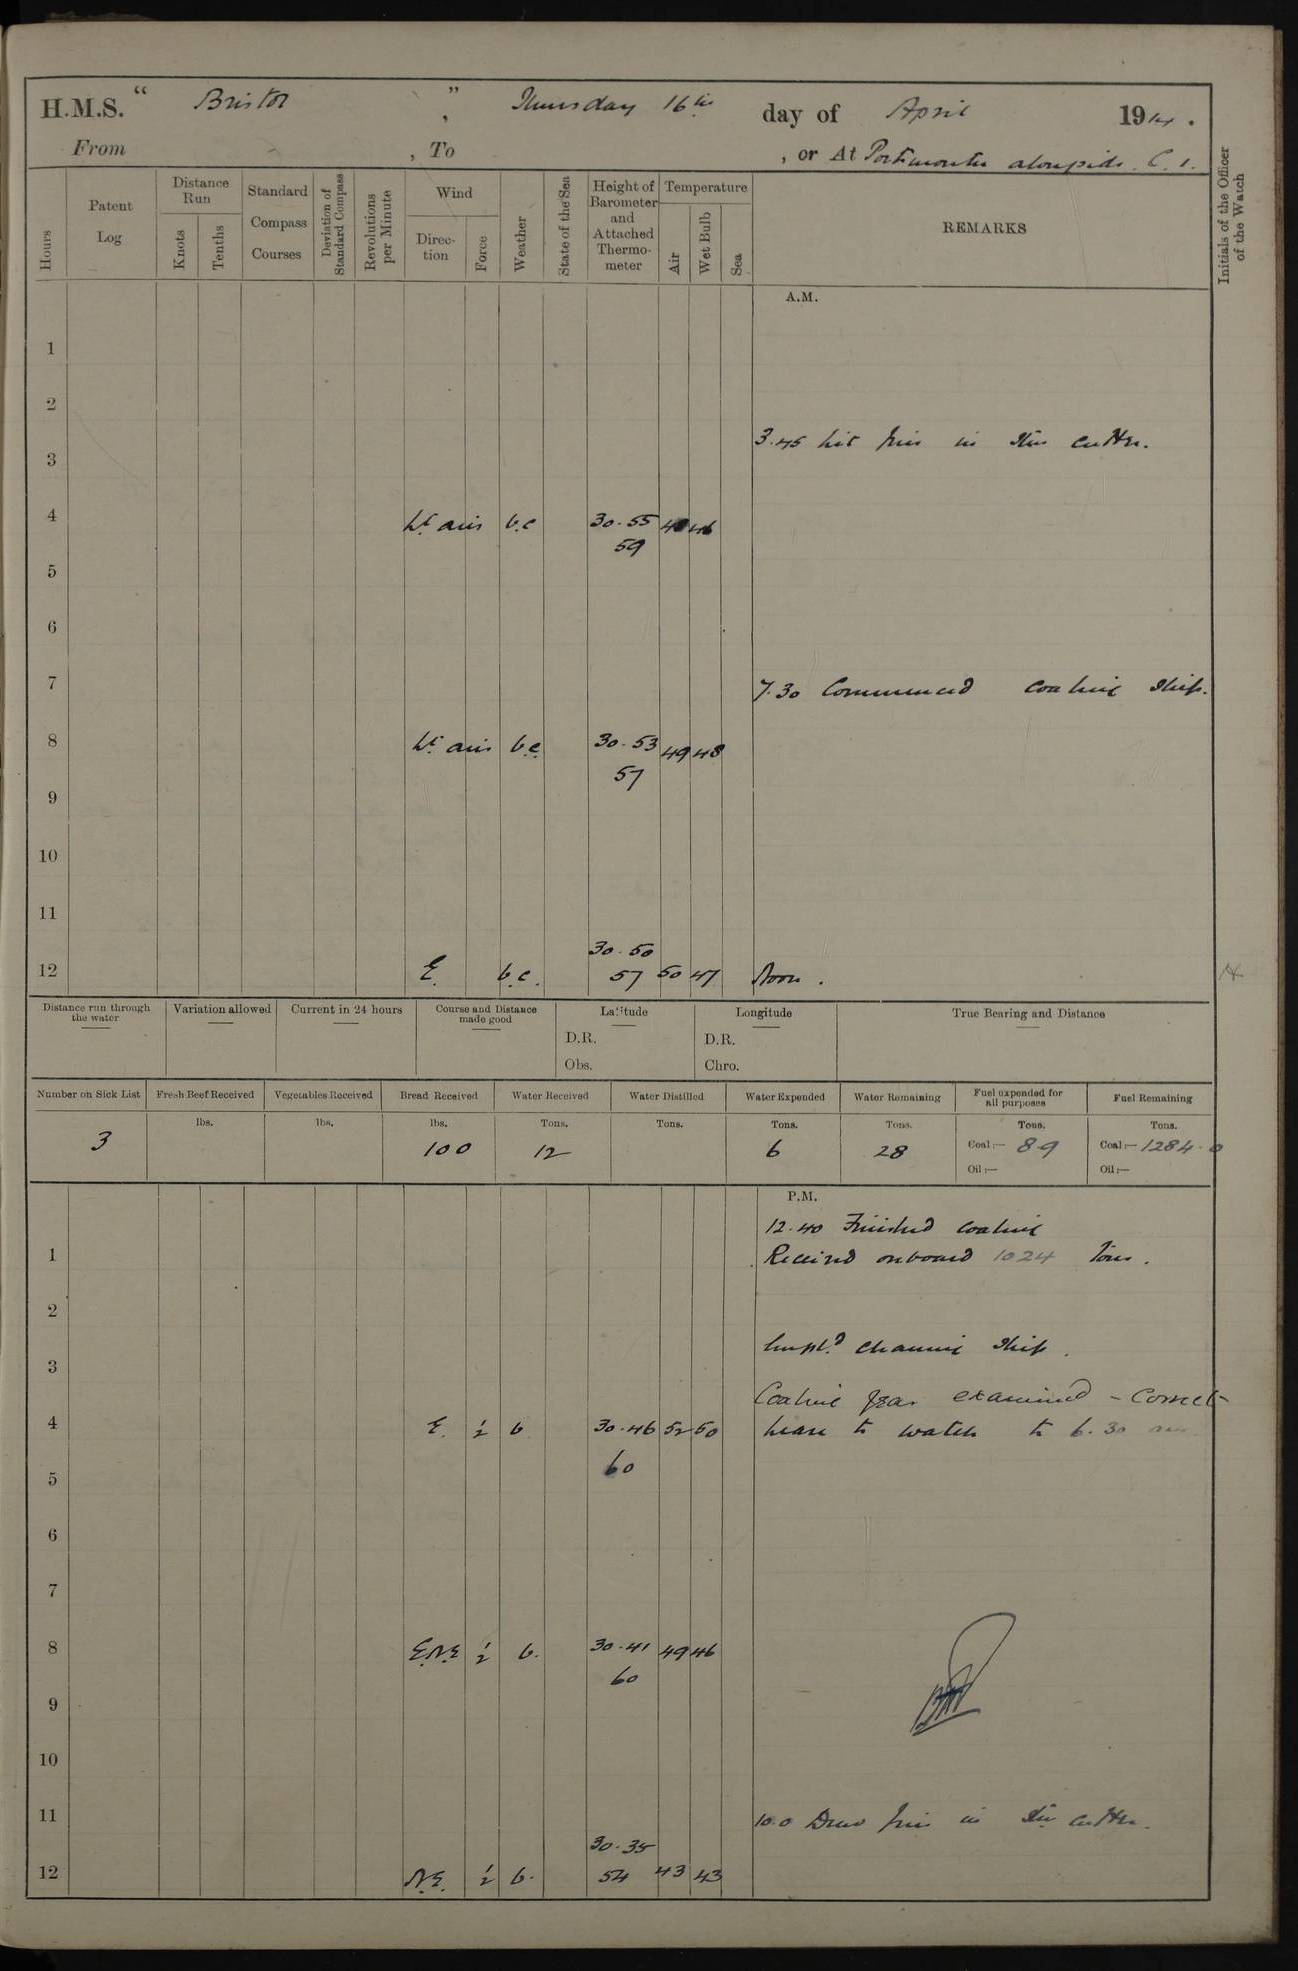 H.M.S. " Bristol ", Thursday 16th day of April 1914.
From , To , or At Portsmouth alongside C. 1.
Hours
Patent Log
Distance Run
Knots
Tenths
Standard Compass Courses
Deviation of Standard Compass
Revolutions per Minute
Wind
Direction
Force
Weather
State of the Sea
Height of Barometer and Attached Thermometer
Temperature
Air
Wet Bulb
Sea
REMARKS
Initials of the Officer of the Watch
A.M.
1
2
3.45 Lit fires in Stm cutter.
3
4 Lt airs b.c 30.55 46
59
5
6
7 7.30 Commenced coaling ship.
8 Lt airs b.c. 30.53 49 48
57
9
10
11
30.50
12 E. b.c. 57 50 47 Noon.
Distance run through the water
Variation allowed
Current in 24 hours
Course and Distance made good
Latitude
D.R.
Obs.
Longitude
D.R.
Chro.
True Bearing and Distance
Number on Sick List Fresh Beef Received Vegetables Received Bread Received Water Received Water Distilled Water Expended Water Remaining Fuel expended for all purposes Fuel Remaining
lbs. lbs. lbs. Tons. Tons. Tons. Tons. Tons. Tons.
3 100 12 6 28 Coal:— 89 Coal:— 1284.0
Oil:— Oil:—
P.M.
12.40 Finished coaling
1 Received onboard 1024 tons.
2
Empl.d cleaning ship.
3
Coaling gear examined - Correct
4 E. ½ b 30.46 52 50 Leave to watch to 6.30 am
60
5
6
7
8 E.N.E ½ b. 30.41 49 46
60
9
10
11 10.0 Drew fires in Stm cutter.
30.35
12 N.E. ½ b. 54 43 43